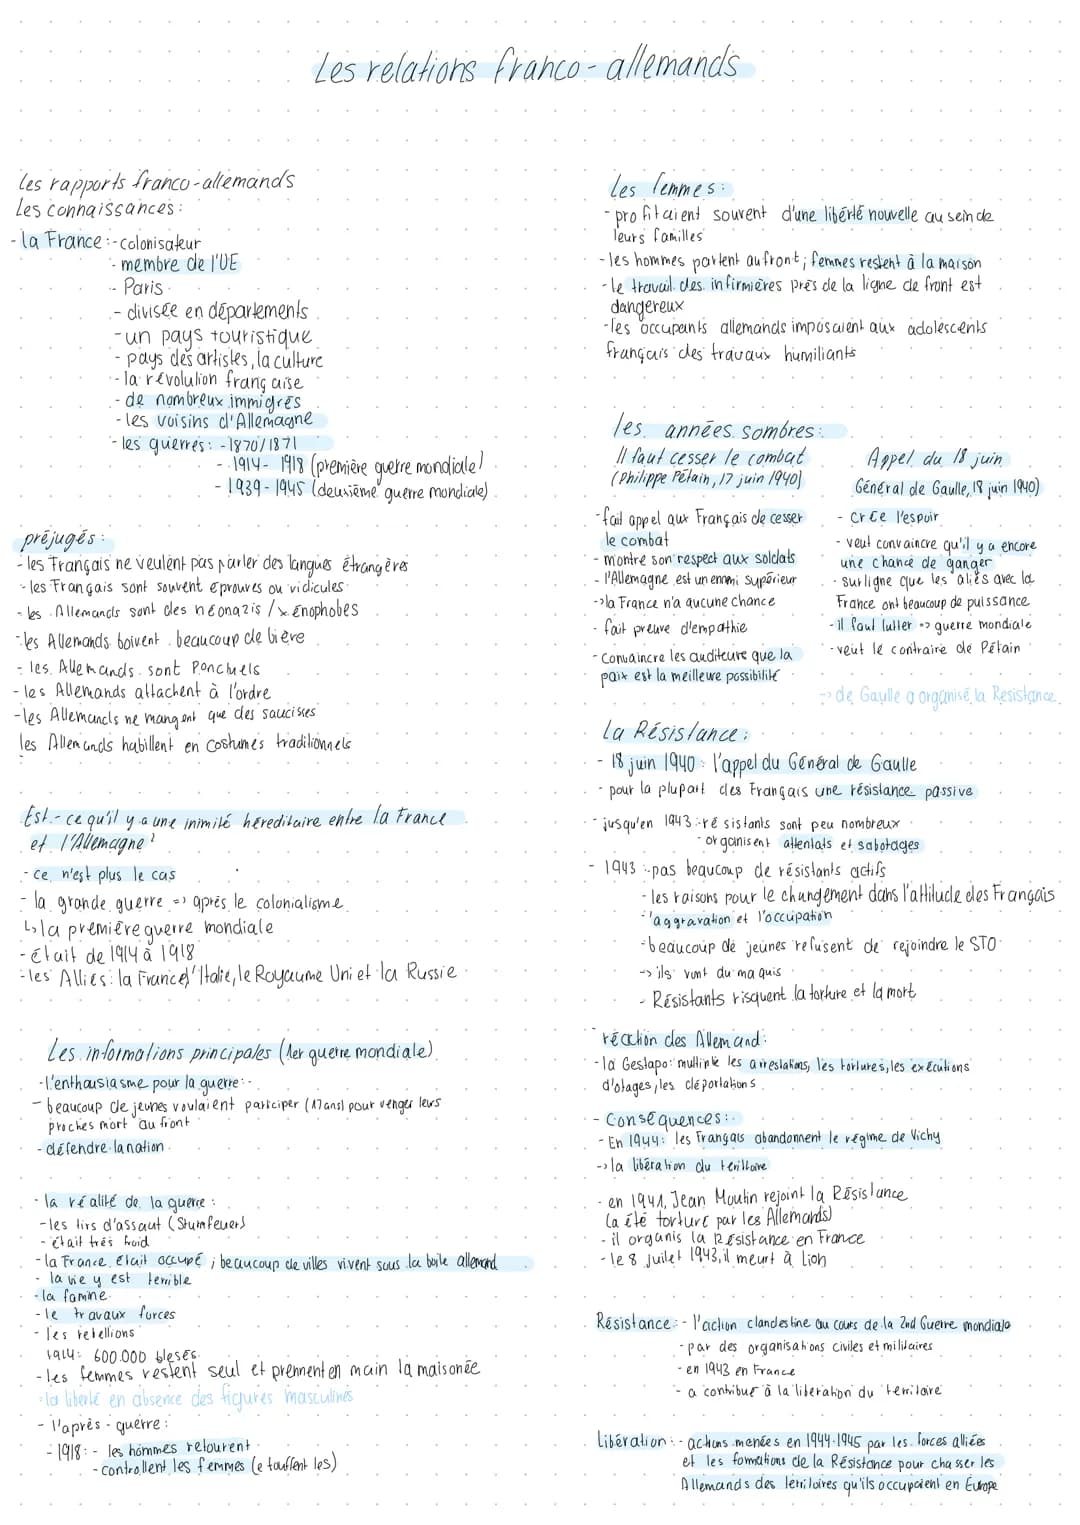 Les relations franco-allemands
Les rapports franco-allemands
Les connaissances:
- la France: - colonisateur
- membre de l'UE
- Paris
- divisée en départements
- un pays touristique
- pays des artistes, la culture
- la révolution française
- de nombreux immigrés
- les voisins d'Allemagne
- les guerres: - 1870/1871
- 1914-1918 (première guerre mondiale)
- 1939-1945 (deuxième guerre mondiale)
préjugés:
- les Français ne veulent pas parler des langues étrangères
- les Français sont souvent éprouves ou vidicules
- les Allemands sont des néonazis / xénophobes
- les Allemands boivent beaucoup de bière
- les Allemands sont Ponctuels
- les Allemands attachent à l'ordre
- les Allemands ne mangent que des saucisses
les Allemands habillent en costumes traditionnels
Est-ce qu'il y a une inimité héréditaire entre la France
et l'Allemagne?
- ce n'est plus le cas
- la grande guerre => après le colonialisme
↳ la première guerre mondiale
- était de 1914 à 1918
- les Alliés: la France, l'Italie, le Royaume Uni et la Russie
Les informations principales (1er guerre mondiale)
- l'enthousiasme pour la guerre: -
- beaucoup de jeunes voulaient participer (17 ans) pour venger leurs
proches mort au front
- défendre la nation
- la réalité de la guerre:
- les tirs d'assaut (Sturmfeuer)
- était très froid
- la France était occupé; beaucoup de villes vivent sous la boite allemand
- la vie y est terrible
- la famine
- le travaux forces
- les rebellions
1914: 600.000 blesés
- les femmes restent seul et prennent en main la maisonée
la liberté en absence des figures masculines
- l'après-guerre:
- 1918: - les hommes retourent
- controllent les femmes (etouffent les)
Les femmes:
- profitaient souvent d'une liberté nouvelle au sein de
leurs familles
- les hommes partent au front; femmes restent à la maison
- le travail des infirmières près de la ligne de front est
dangereux
- les occupants allemands imposaient aux adolescents
français des travaux humiliants
les années sombres:
Il faut cesser le combat
(Philippe Pétain, 17 juin 1940)
- fait appel aux Français de cesser
le combat
- montre son respect aux soldats
- l'Allemagne est un enmi supérieur
-> la France n'a aucune chance
- fait preuve d'empathie
- Convaincre les auditeurs que la
paix est la meilleure possibilité
Appel du 18 juin
Général de Gaulle, 18 juin 1940)
- crée l'espoir
- veut convaincre qu'il y a encore
une chance de ganger
- surligne que les aliés avec la
France ont beaucoup de puissance
- il faut lutter => guerre mondiale
- veut le contraire de Pétain
-> de Gaulle a organisé la Resistance
La Résistance:
- 18 juin 1940: l'appel du Général de Gaulle
- pour la plupart des Français une résistance passive
- jusqu'en 1943: résistants sont peu nombreux
- organisent attentats et sabotages
- 1943: - pas beaucoup de résistants actifs
- les raisons pour le changement dans l'attitude des Français
- l'aggravation et l'occupation
- beaucoup de jeunes refusent de rejoindre le STO
-> ils vont du maquis
- Résistants risquent la torture et la mort
réaction des Allemand:
- la Gestapo: multiple les arrestations, les tortures, les exécutions
d'otages, les déportations
- Conséquences:
- En 1944: les Français abandonnent le régime de Vichy
-> la libération du territoire
- en 1941, Jean Moulin rejoint la Résistance
(a été torturé par les Allemands)
- il organis la Résistance en France
- le 8 juilet 1943, il meurt à Lion
Résistance: - l'action clandestine au cours de la 2nd Guerre mondiale
- par des organisations civiles et militaires
- en 1943 en France
- a contribué à la libération du territoire
Libération: - actions menées en 1944-1945 par les forces alliées
et les formations de la Résistance pour chasser les
Allemands des territoires qu'ils occupaient en Europe